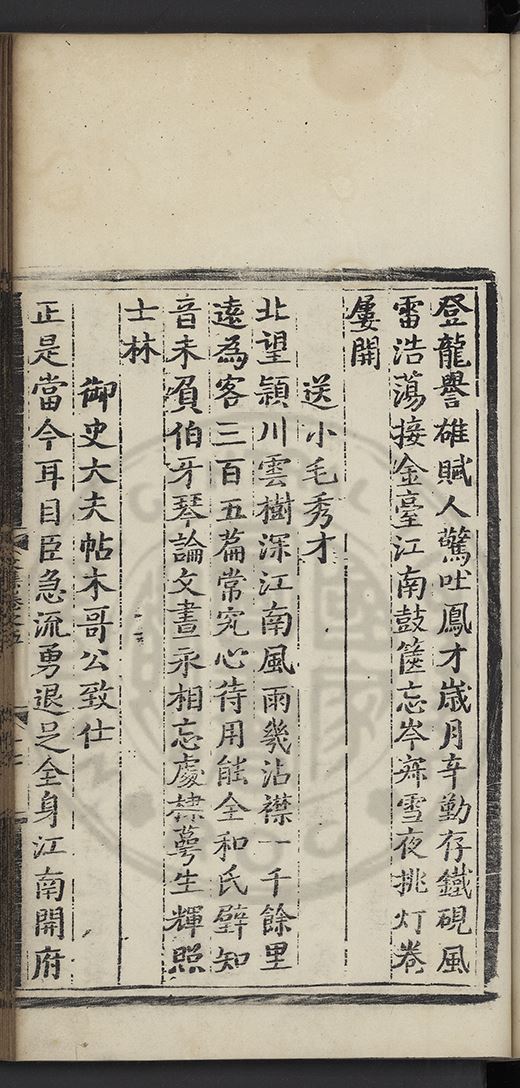 登龍譽雄賦人驚吐鳳才歲月辛勤存鐵硯風
雷浩蕩接金臺江南鼓篋忘岑寂雪夜挑灯卷
屢開
送小毛秀才
北望潁川雲樹深江南風雨幾沾襟一千餘里
遠為客三百五篇常究心待用能全和氏璧知
音未負伯牙琴論文晝永相忘處棣萼生輝照
士林
御史大夫帖木哥公致仕
正是當今耳目臣急流勇退足全身江南開府